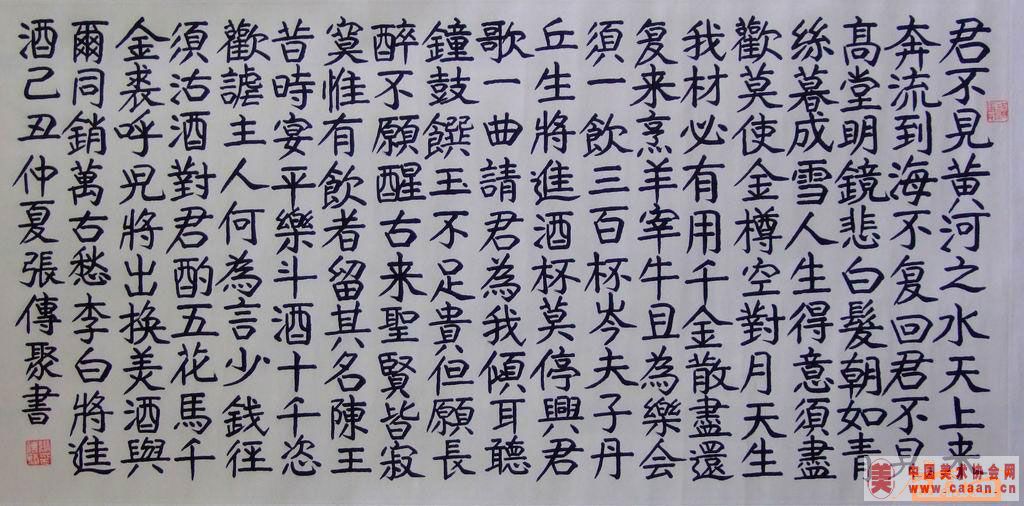 君不見黄河之水天上来
奔流到海不复回君不見
髙堂明鏡悲白髮朝如青
絲暮成雪人生得意須盡
歡莫使金樽空對月天生
我材必有用千金散盡還
复来烹羊宰牛且為樂会
須一飲三百杯岑夫子丹
丘生將進酒杯莫停興君
歌一曲請君為我傾耳聽
鐘鼓饌玉不足貴但願長
醉不願醒古来聖賢皆寂
寞惟有飲者留其名陳王
昔時宴平樂斗酒十千恣
歡謔主人何為言少錢徑
須沽酒對君酌五花馬千
金裘呼児將出换美酒與
爾同銷萬古愁李白將進
酒己丑仲夏張傳聚書
美
中国美术协会网
www.caaan.cn